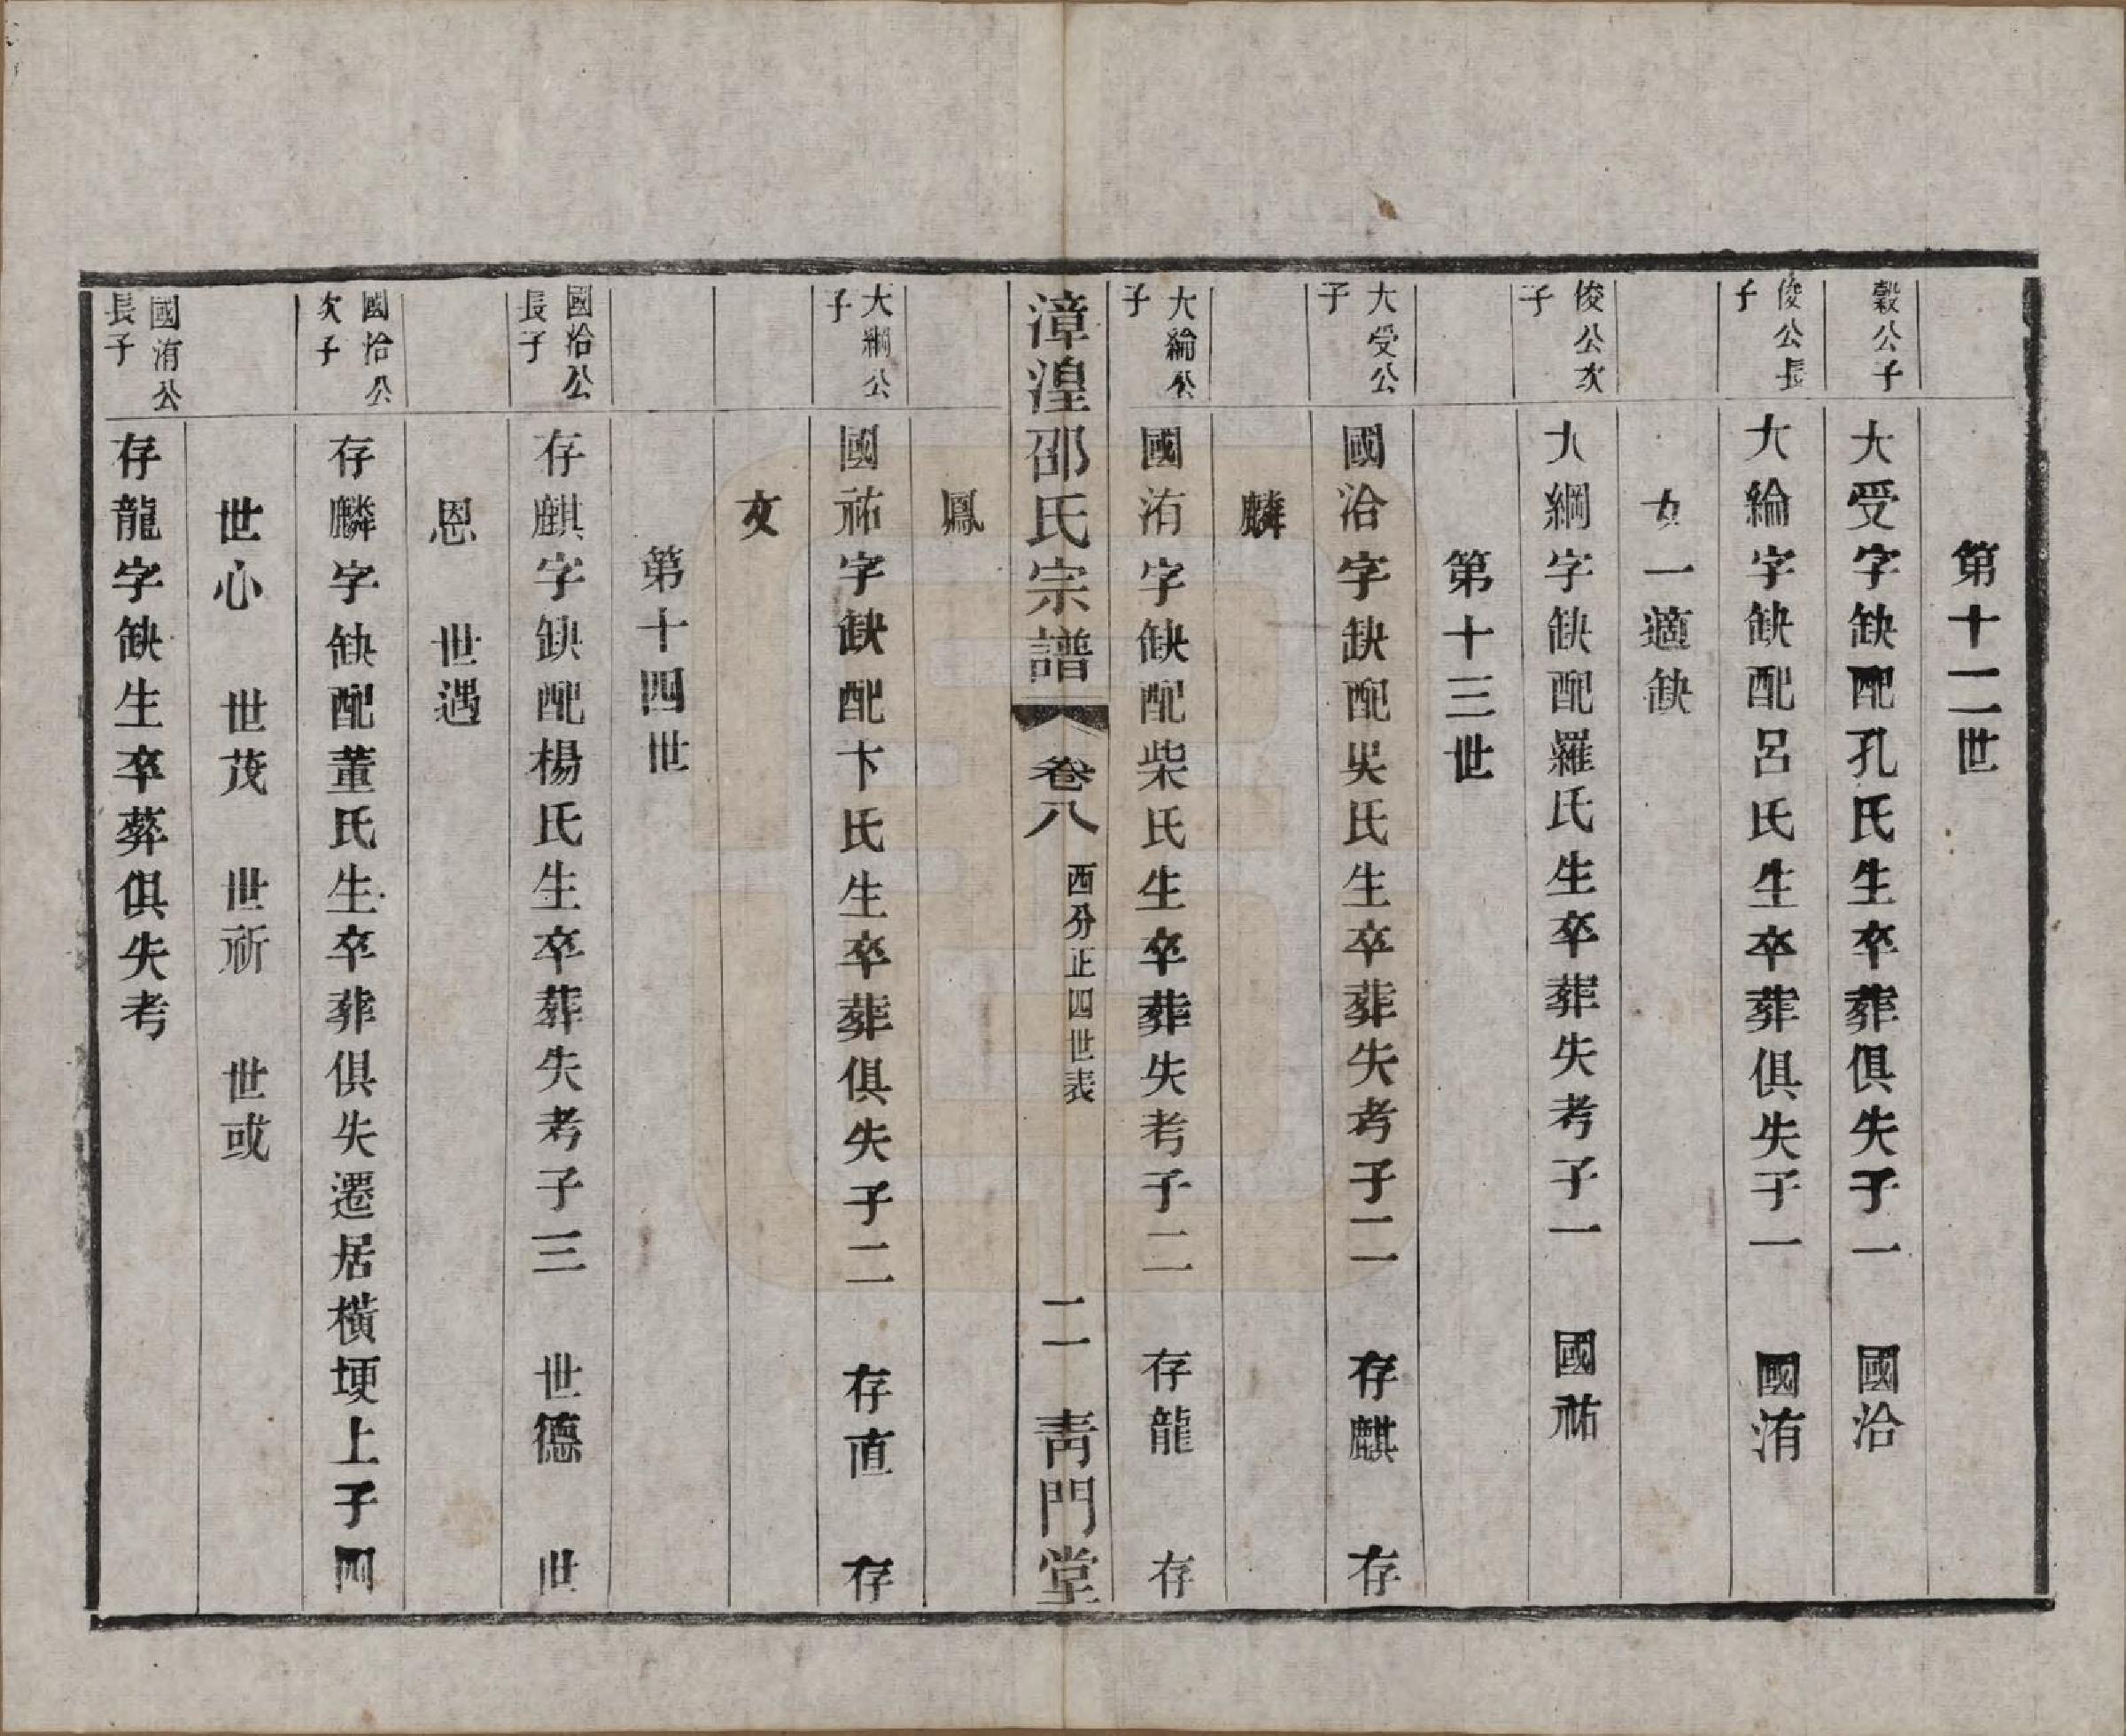 第十二世
縠公子
大受字缺配孔氏生卒葬俱失子一 國洽
俊公長子
大綸字缺配呂氏生卒葬俱失子一 國洧
女一適缺
俊公次子
大綱字缺配羅氏生卒葬失考子一 國祐
第十三世
大受公子
國洽字缺配吳氏生卒葬失考子二 存麒 存
麟
大綸公子
國洧字缺配柴氏生卒葬失考子二 存龍 存
漳湟邵氏宗譜 卷八 西分正四世表 二 靑門堂
鳳
大綱公子
國祐字缺配卞氏生卒葬俱失子二 存直 存
文
第十四世
國洽公長子
存麒字缺配楊氏生卒葬失考子三 世德 世
恩 世遇
國洽公次子
存麟字缺配董氏生卒葬俱失遷居橫埂上子四
世心 世茂 世祈 世或
國洧公長子
存龍字缺生卒葬俱失考